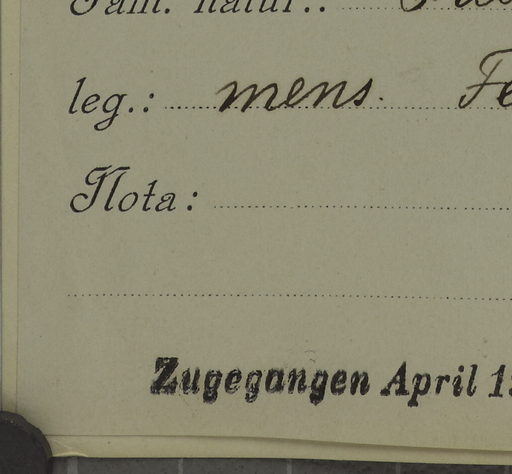 Fam. natur.:
leg.: mens. Fe
Nota:
Zugegangen April 1